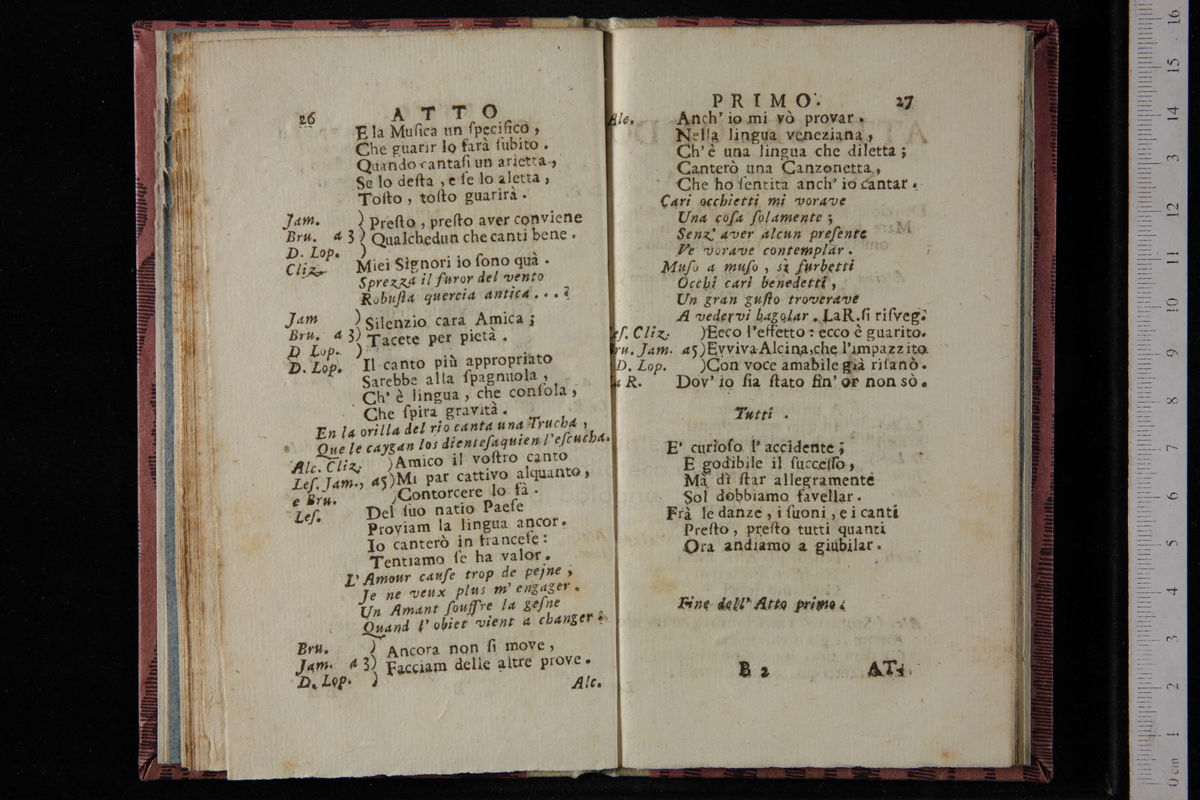 26 ATTO
E la Muſica un ſpecifico,
Che guarir lo farà ſubito.
Quando cantaſi un arietta,
Se lo deſta, e ſe lo aletta,
Toſto, toſto guarirà.
Jam. ) Preſto, preſto aver conviene
Bru. a 3 ) Qualchedun che canti bene.
D. Lop. )
Cliz. Miei Signori io ſono quà.
Sprezza il furor del vento
Robuſta quercia antica...?
Jam ) Silenzio cara Amica;
Bru. a 3) Tacete per pietà.
D Lop. )
D. Lop. Il canto più appropriato
Sarebbe alla ſpagnuola,
Ch' è lingua, che conſola,
Che ſpira gravità.
En la orilla del rio canta una Trucha,
Que le caygan los dienteſaquien l'eſcucha.
Alc. Cliz. )Amico il voſtro canto
Leſ. Jam., a5)Mi par cattivo alquanto,
e Bru. )Contorcere lo fà.
Leſ. Del ſuo natio Paeſe
Proviam la lingua ancor.
Io canterò in franceſe:
Tentiamo ſe ha valor.
L' Amour cauſe trop de pejne,
Je ne veux plus m' engager.
Un Amant ſouffre la geſne
Quand l' obiet vient a changer.
Bru. ) Ancora non ſi move,
Jam. a 3) Facciam delle altre prove.
D. Lop. )
Alc.
PRIMO. 27
Alc. Anch' io mi vò provar.
Nella lingua veneziana,
Ch' è una lingua che diletta;
Canterò una Canzonetta,
Che ho ſentita anch' io cantar.
Cari occhietti mi vorave
Una coſa ſolamente;
Senz' aver alcun preſente
Ve vorave contemplar.
Muſo a muſo, sì furbetti
Occhi cari benedetti,
Un gran guſto troverave
A vedervi bagolar. LaR. ſi riſveg.
eſ. Cliz. )Ecco l'effetto: ecco è guarito.
ru. Jam. a5)Evviva Alcina, che l'impazzito
D. Lop. )Con voce amabile già riſanò.
a R. Dov' io ſia ſtato fin' or non sò.
Tutti.
E' curioſo l' accidente;
E godibile il ſucceſſo,
Mà dì ſtar allegramente
Sol dobbiamo favellar.
Frà le danze, i ſuoni, e i canti
Preſto, preſto tutti quanti
Ora andiamo a giubilar.
Fine dell' Atto primo.
B 2 AT-